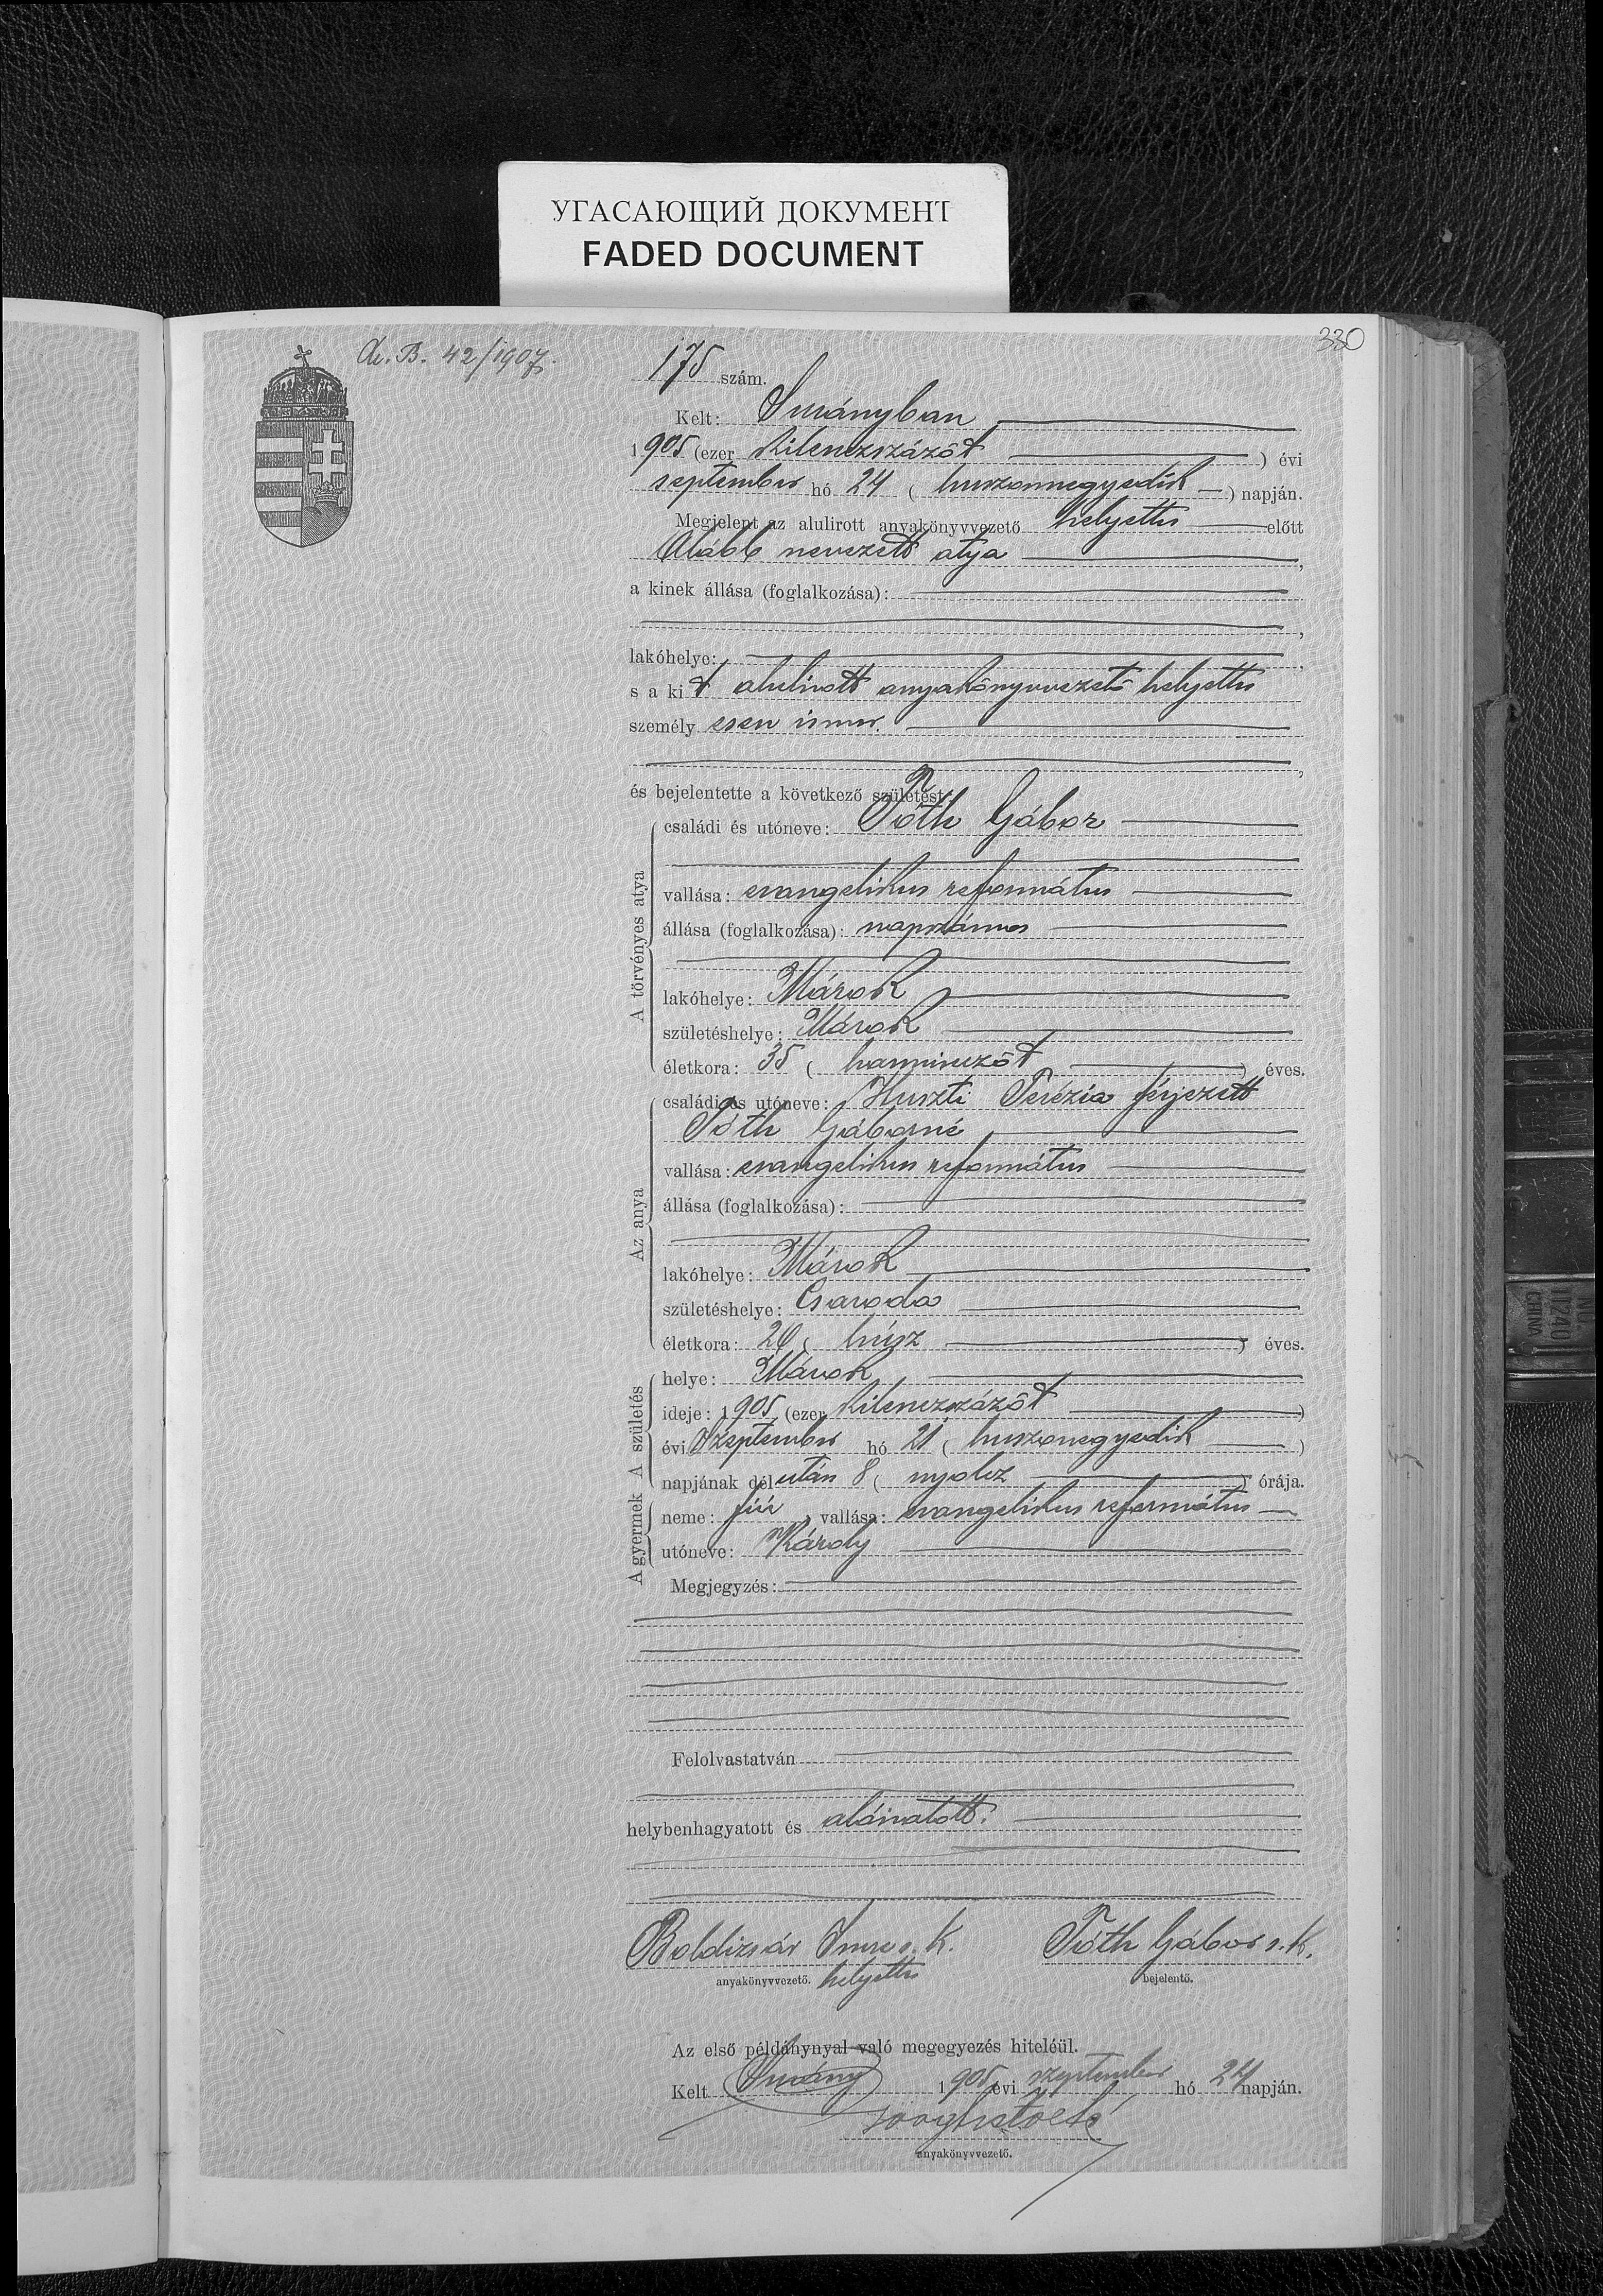 УГАСАЮЩИЙ ДОКУМЕНТ
FADED DOCUMENT
330
B. 42/1907.
175 szám.
Kelt: Surányban
1905 (ezer kilenczszázöt) évi
september hó 24 (huszonnegyedik) napján.
Megjelent az alulirott anyakönyvvezető helyettes előtt
Alább nevezett atya,
a kinek állása (foglalkozása):
,
lakóhelye:,
s a kit alulirott anyakönyvvezető helyettes
személyesen ismer.
,
és bejelentette a következő születést:
A törvényes atya
családi és utóneve: Tóth Gábor
vallása: evangelikus református
állása (foglalkozása): napszámos
lakóhelye: Márok
születéshelye: Márok
életkora: 35 (harminczöt) éves.
Az anya
családi és utóneve: Huszti Terézia férjezett
Tóth Gáborné
vallása: evangelikus református
állása (foglalkozása):
lakóhelye: Márok
születéshelye: Csaroda
életkora: 20 (húsz) éves.
A születés
helye: Márok
ideje: 1905 (ezer kilenczszázöt)
évi Szeptember hó 21 (huszonegyedik)
napjának délután 8 (nyolcz) órája.
A gyermek
neme: fiú, vallása: evangelikus református
utóneve: Károly
Megjegyzés:
Felolvastatván
helybenhagyatott és aláiratott.
Boldizsár Imre s. k. Tóth Gábor s. k.
anyakönyvvezető. helyettes bejelentő.
Az első példánynyal való megegyezés hiteléül.
Kelt Surány 1905 évi szeptember hó 24 napján.
anyakönyvvezető.